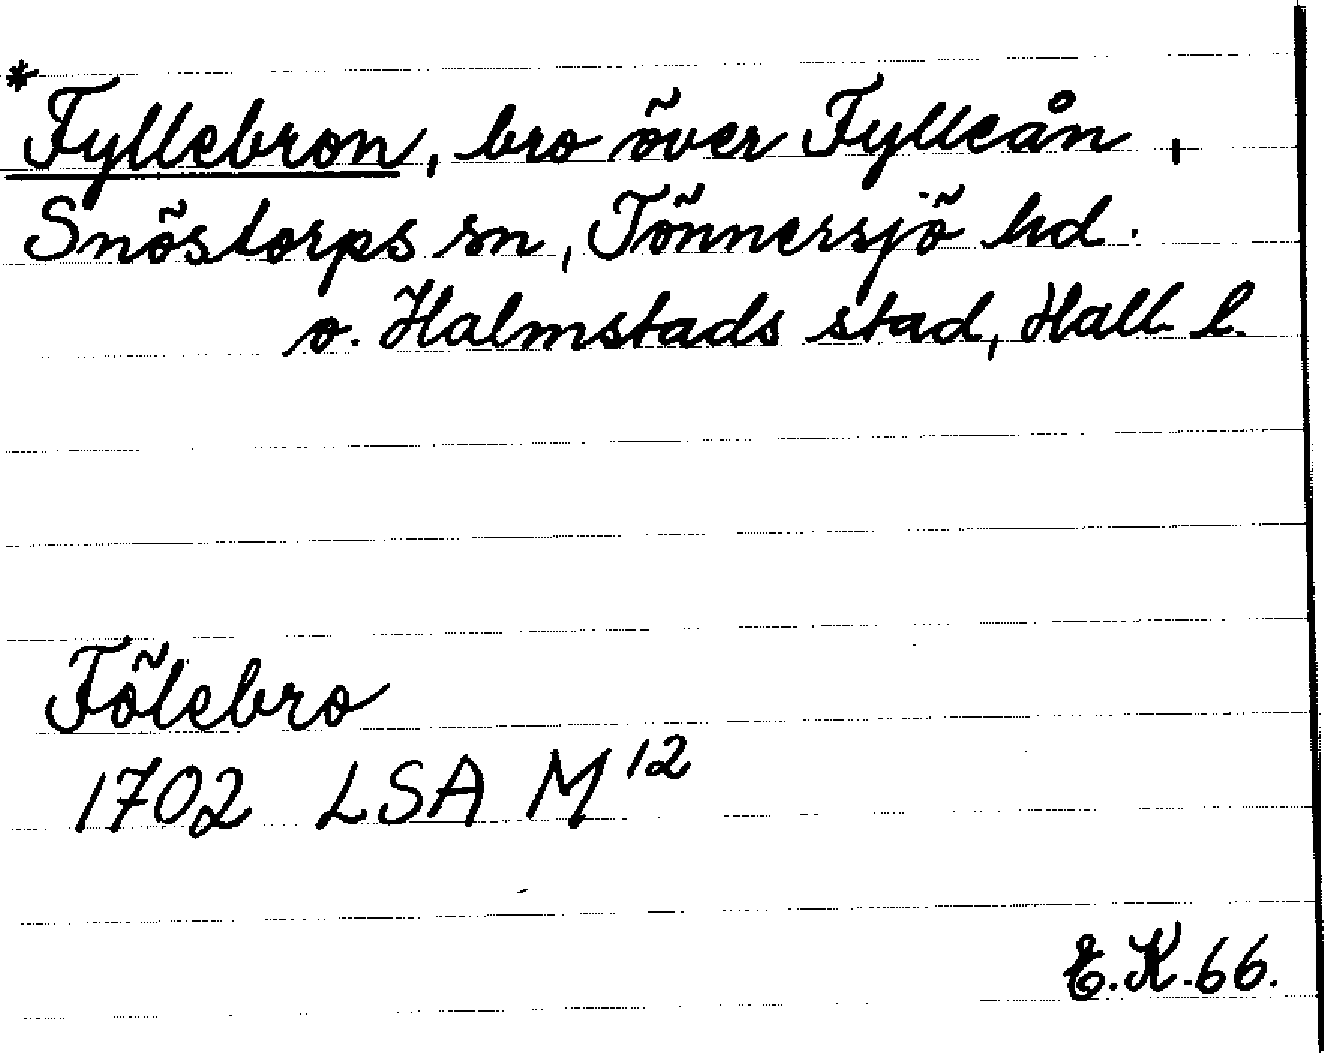 *Fyllebron, bro över Fylleån,
Snöstorps sn, Tönnersjö hd.
o. Halmstads stad, Hall. l.
Fölebro
1702 LSA M 12
E.K. 66.